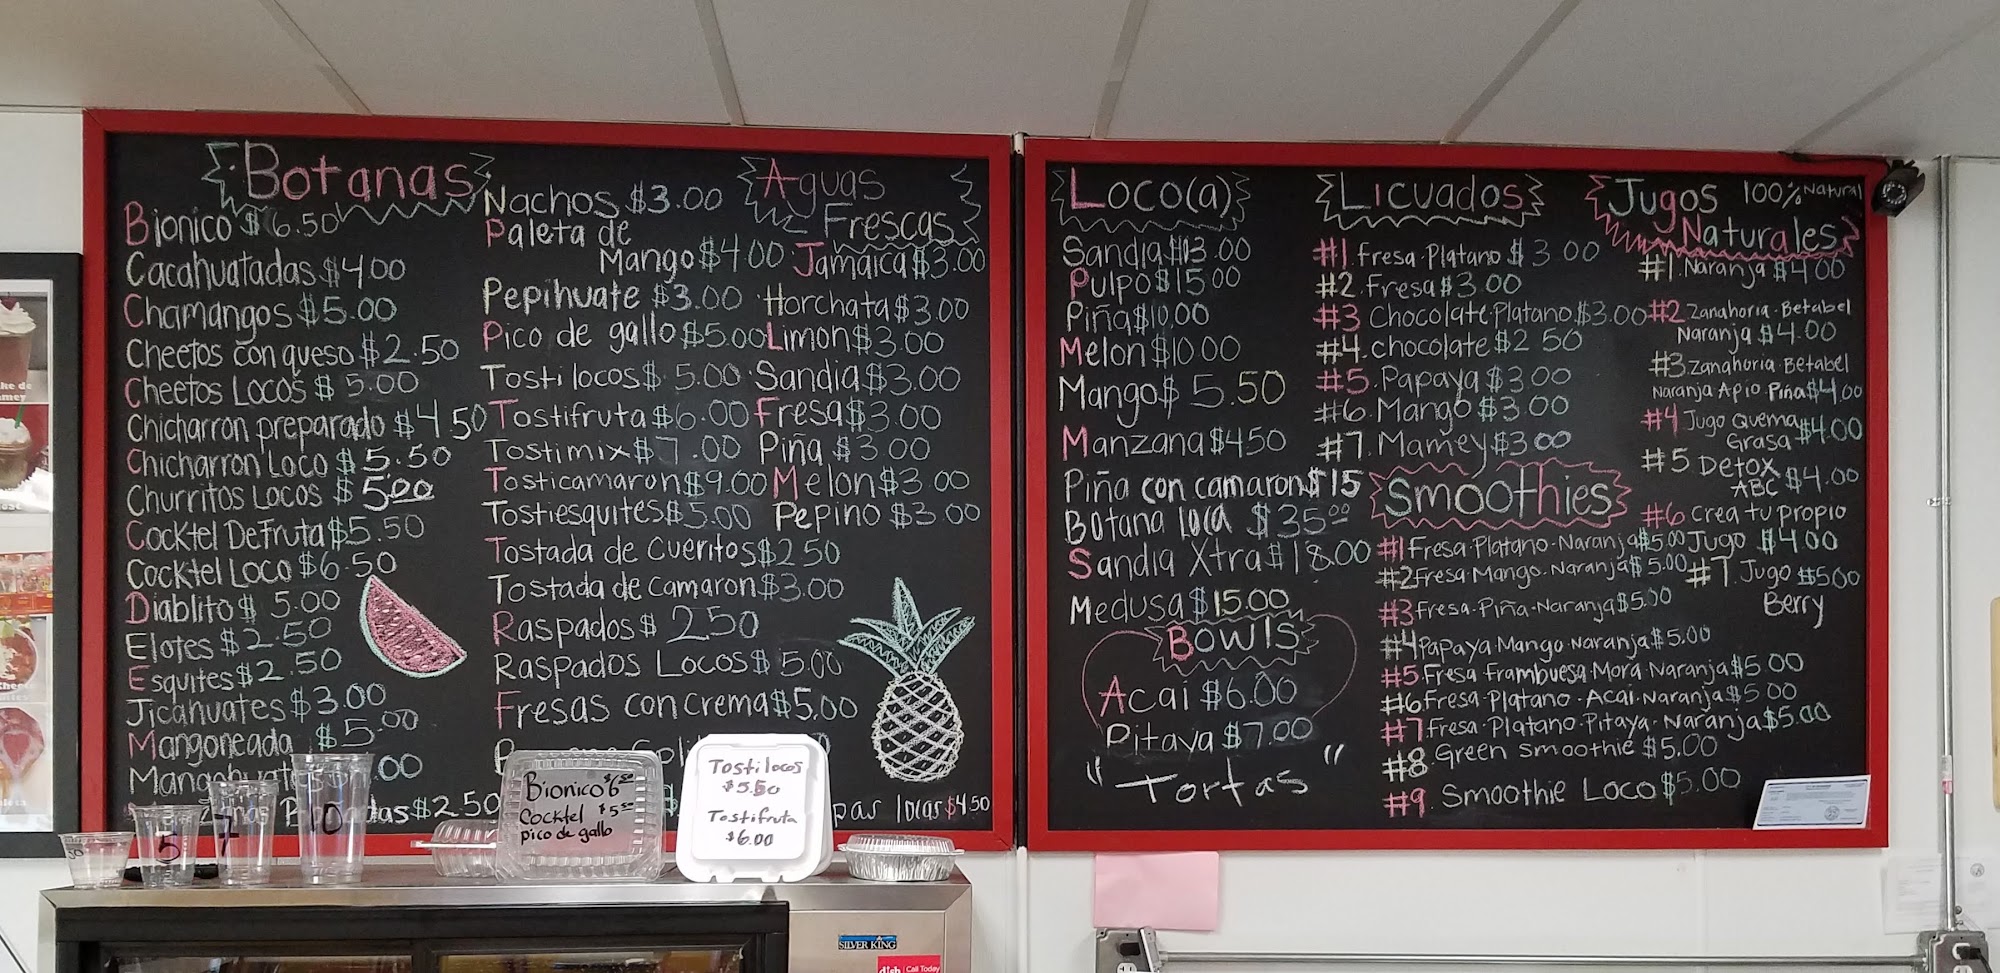 Botanas
Bionico $6.50
Cacahuatadas $4.00
Chamangos $5.00
Cheetos con queso $2.50
Cheetos Locos $5.00
Chicharron preparado $4.50
Chicharron Loco $5.50
Churritos Locos $5.00
Cocktel De Fruta $5.50
Cocktel Loco $6.50
Diablito $5.00
Elotes $2.50
Esquites $2.50
Jicahuates $3.00
Mangoneada $5.00
.00
$2.50
Nachos $3.00
Paleta de
Mango $4.00
Pepihuate $3.00
Pico de gallo $5.00
Tostilocos $5.00
Tostifruta $6.00
Tostimix $7.00
Tosticamaron $9.00
Tostiesquites $5.00
Tostada de cueritos $2.50
Tostada de camaron $3.00
Raspados $2.50
Raspados Locos $5.00
Fresas con crema $5.00
pas locas $4.50
Aguas
Frescas
Jamaica $3.00
Horchata $3.00
Limon $3.00
Sandia $3.00
Fresa $3.00
Piña $3.00
Melon $3.00
Pepino $3.00
Loco(a)
Sandia $13.00
Pulpo $15.00
Piña $10.00
Melon $10.00
Mango $5.50
Manzana $4.50
Piña con camaron $15
Botana loca $35.00
Sandia Xtra $18.00
Medusa $15.00
Bowls
Acai $6.00
Pitaya $7.00
"Tortas"
Licuados
#1. Fresa-Platano $3.00
#2. Fresa $3.00
#3 Chocolate-Platano $3.00
#4. chocolate $2.50
#5. Papaya $3.00
#6. Mango $3.00
#7. Mamey $3.00
Smoothies
#1 Fresa-Platano-Naranja $5.00
#2 Fresa-Mango-Naranja $5.00
#3 Fresa-Piña-Naranja $5.00
#4 Papaya-Mango-Naranja $5.00
#5. Fresa frambuesa-Mora-Naranja $5.00
#6 Fresa-Platano-Acai-Naranja $5.00
#7 Fresa-Platano-Pitaya-Naranja $5.00
#8. Green smoothie $5.00
#9. Smoothie Loco $5.00
Jugos 100% Natural
Naturales
#1. Naranja $4.00
#2 Zanahoria-Betabel
Naranja $4.00
#3 Zanahoria-Betabel
Naranja-Apio-Piña $4.00
#4 Jugo Quema
Grasa $4.00
#5 Detox
ABC $4.00
#6 crea tu propio
Jugo $4.00
#7 Jugo $5.00
Berry
5
7
10
Bionico $6.50
Cocktel $5.50
pico de gallo
Tostilocos
$5.50
Tostifruta
$6.00
SILVER KING
dish Call Today